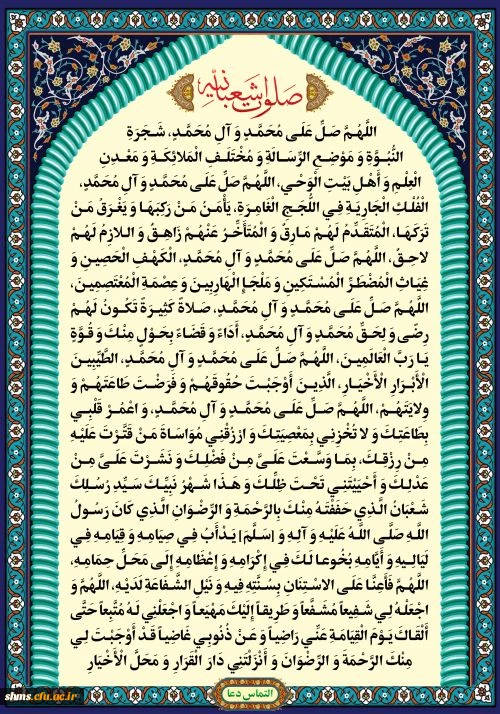 صلوات شعبانیه
اللَّهُمَّ صَلِّ عَلَى مُحَمَّدٍ وَ آلِ مُحَمَّدٍ، شَجَرَةِ
النُّبُوَّةِ وَ مَوْضِعِ الرِّسَالَةِ وَ مُخْتَلَفِ الْمَلَائِكَةِ وَ مَعْدِنِ
الْعِلْمِ وَ أَهْلِ بَيْتِ الْوَحْيِ، اللَّهُمَّ صَلِّ عَلَى مُحَمَّدٍ وَ آلِ مُحَمَّدٍ،
الْفُلْكِ الْجَارِيَةِ فِي اللُّجَجِ الْغَامِرَةِ، يَأْمَنُ مَنْ رَكِبَهَا وَ يَغْرَقُ مَنْ
تَرَكَهَا، الْمُتَقَدِّمُ لَهُمْ مَارِقٌ وَ الْمُتَأَخِّرُ عَنْهُمْ زَاهِقٌ وَ اللازِمُ لَهُمْ
لاحِقٌ، اللَّهُمَّ صَلِّ عَلَى مُحَمَّدٍ وَ آلِ مُحَمَّدٍ، الْكَهْفِ الْحَصِينِ وَ
غِيَاثِ الْمُضْطَرِّ الْمُسْتَكِينِ وَ مَلْجَإِ الْهَارِبِينَ وَ عِصْمَةِ الْمُعْتَصِمِينَ،
اللَّهُمَّ صَلِّ عَلَى مُحَمَّدٍ وَ آلِ مُحَمَّدٍ، صَلاةً كَثِيرَةً تَكُونُ لَهُمْ
رِضًى وَ لِحَقِّ مُحَمَّدٍ وَ آلِ مُحَمَّدٍ، أَدَاءً وَ قَضَاءً بِحَوْلٍ مِنْكَ وَ قُوَّةٍ
يَا رَبَّ الْعَالَمِينَ، اللَّهُمَّ صَلِّ عَلَى مُحَمَّدٍ وَ آلِ مُحَمَّدٍ، الطَّيِّبِينَ
الْأَبْرَارِ الْأَخْيَارِ، الَّذِينَ أَوْجَبْتَ حُقُوقَهُمْ وَ فَرَضْتَ طَاعَتَهُمْ وَ
وِلايَتَهُمْ، اللَّهُمَّ صَلِّ عَلَى مُحَمَّدٍ وَ آلِ مُحَمَّدٍ، وَ اعْمُرْ قَلْبِي
بِطَاعَتِكَ وَ لا تُخْزِنِي بِمَعْصِيَتِكَ وَ ارْزُقْنِي مُوَاسَاةَ مَنْ قَتَّرْتَ عَلَيْهِ
مِنْ رِزْقِكَ، بِمَا وَسَّعْتَ عَلَيَّ مِنْ فَضْلِكَ وَ نَشَرْتَ عَلَيَّ مِنْ
عَدْلِكَ وَ أَحْيَيْتَنِي تَحْتَ ظِلِّكَ وَ هَذَا شَهْرُ نَبِيِّكَ سَيِّدِ رُسُلِكَ
شَعْبَانُ الَّذِي حَفَفْتَهُ مِنْكَ بِالرَّحْمَةِ وَ الرِّضْوَانِ الَّذِي كَانَ رَسُولُ
اللَّهِ صَلَّى اللَّهُ عَلَيْهِ وَ آلِهِ وَ [سَلَّمَ] يَدْأَبُ فِي صِيَامِهِ وَ قِيَامِهِ فِي
لَيَالِيهِ وَ أَيَّامِهِ بُخُوعا لَكَ فِي إِكْرَامِهِ وَ إِعْظَامِهِ إِلَى مَحَلِّ حِمَامِهِ،
اللَّهُمَّ فَأَعِنَّا عَلَى الاسْتِنَانِ بِسُنَّتِهِ فِيهِ وَ نَيْلِ الشَّفَاعَةِ لَدَيْهِ، اللَّهُمَّ وَ
اجْعَلْهُ لِي شَفِيعاً مُشَفَّعاً وَ طَرِيقاً إِلَيْكَ مَهْيَعاً وَ اجْعَلْنِي لَهُ مُتَّبِعاً حَتَّى
أَلْقَاكَ يَوْمَ الْقِيَامَةِ عَنِّي رَاضِياً وَ عَنْ ذُنُوبِي غَاضِياً قَدْ أَوْجَبْتَ لِي
مِنْكَ الرَّحْمَةَ وَ الرِّضْوَانَ وَ أَنْزَلْتَنِي دَارَ الْقَرَارِ وَ مَحَلَّ الْأَخْيَارِ
التماس دعا
shms.cfu.ac.ir